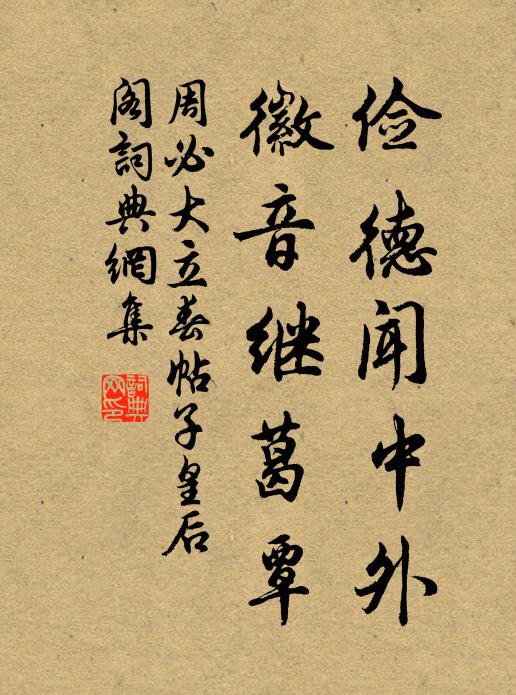 俭德闻中外
徽音继葛覃
周必大立春帖子皇后
阁詞典網集
詞典网印